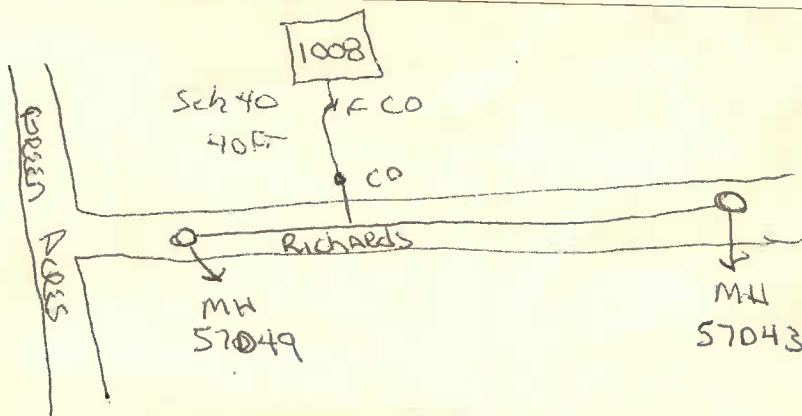 1008
Sch 40
40 Ft
CO
CO
GREEN ACRES
RICHARDS
MH
57049
MH
57043